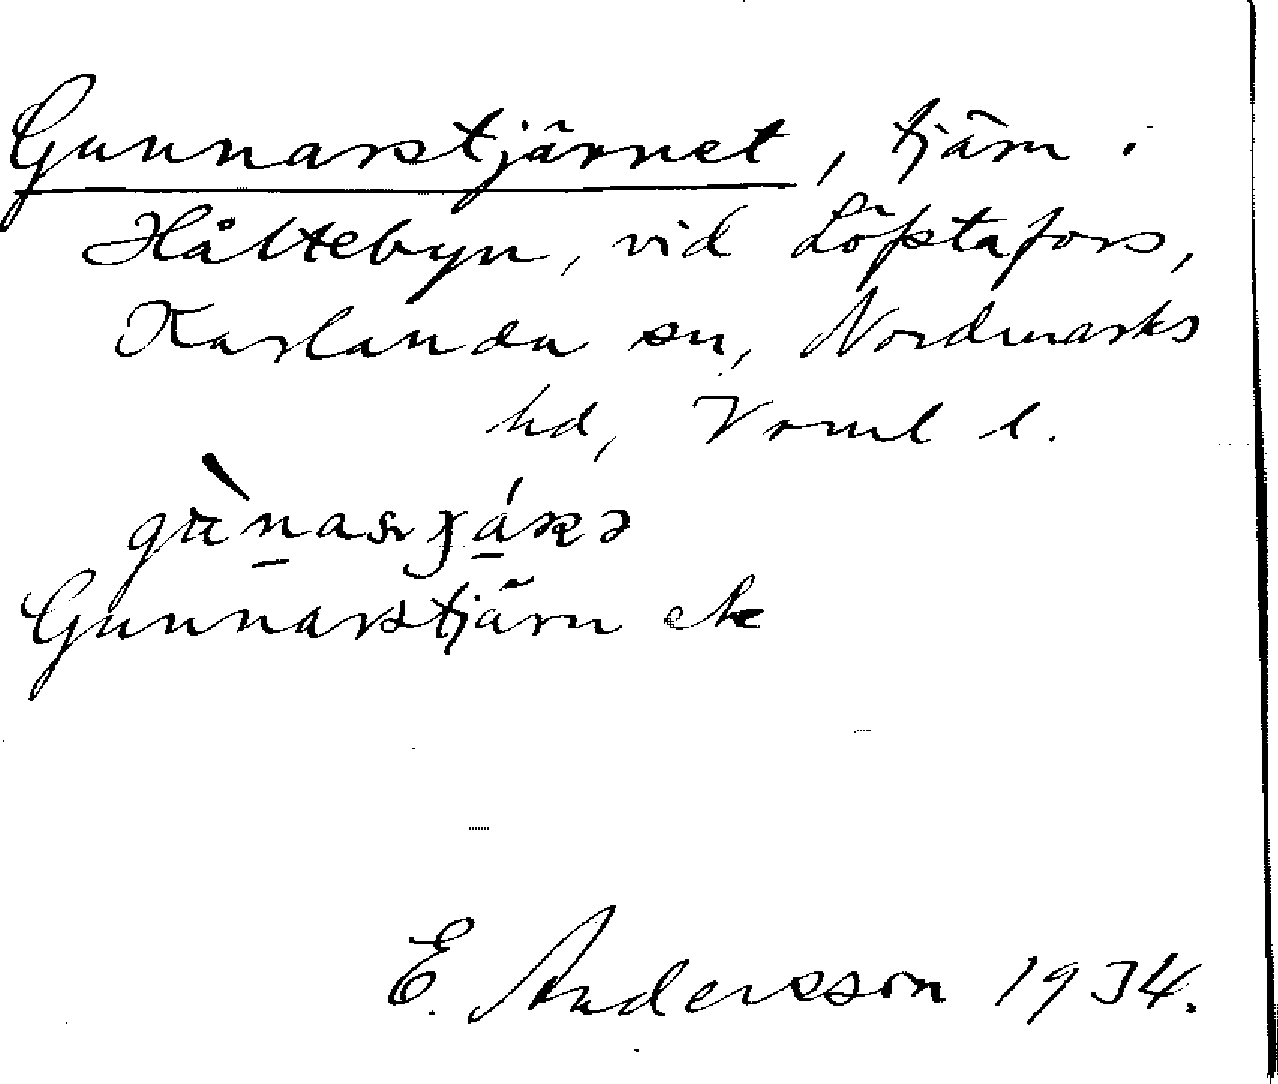 Gunnarstjärnet, tjärn i
Håltebyn, vid Löpstafors,
Karlanda sn, Nordmarks
hd, Vrml l.
Gunnarstjärn ek
E. Andersson 1934.